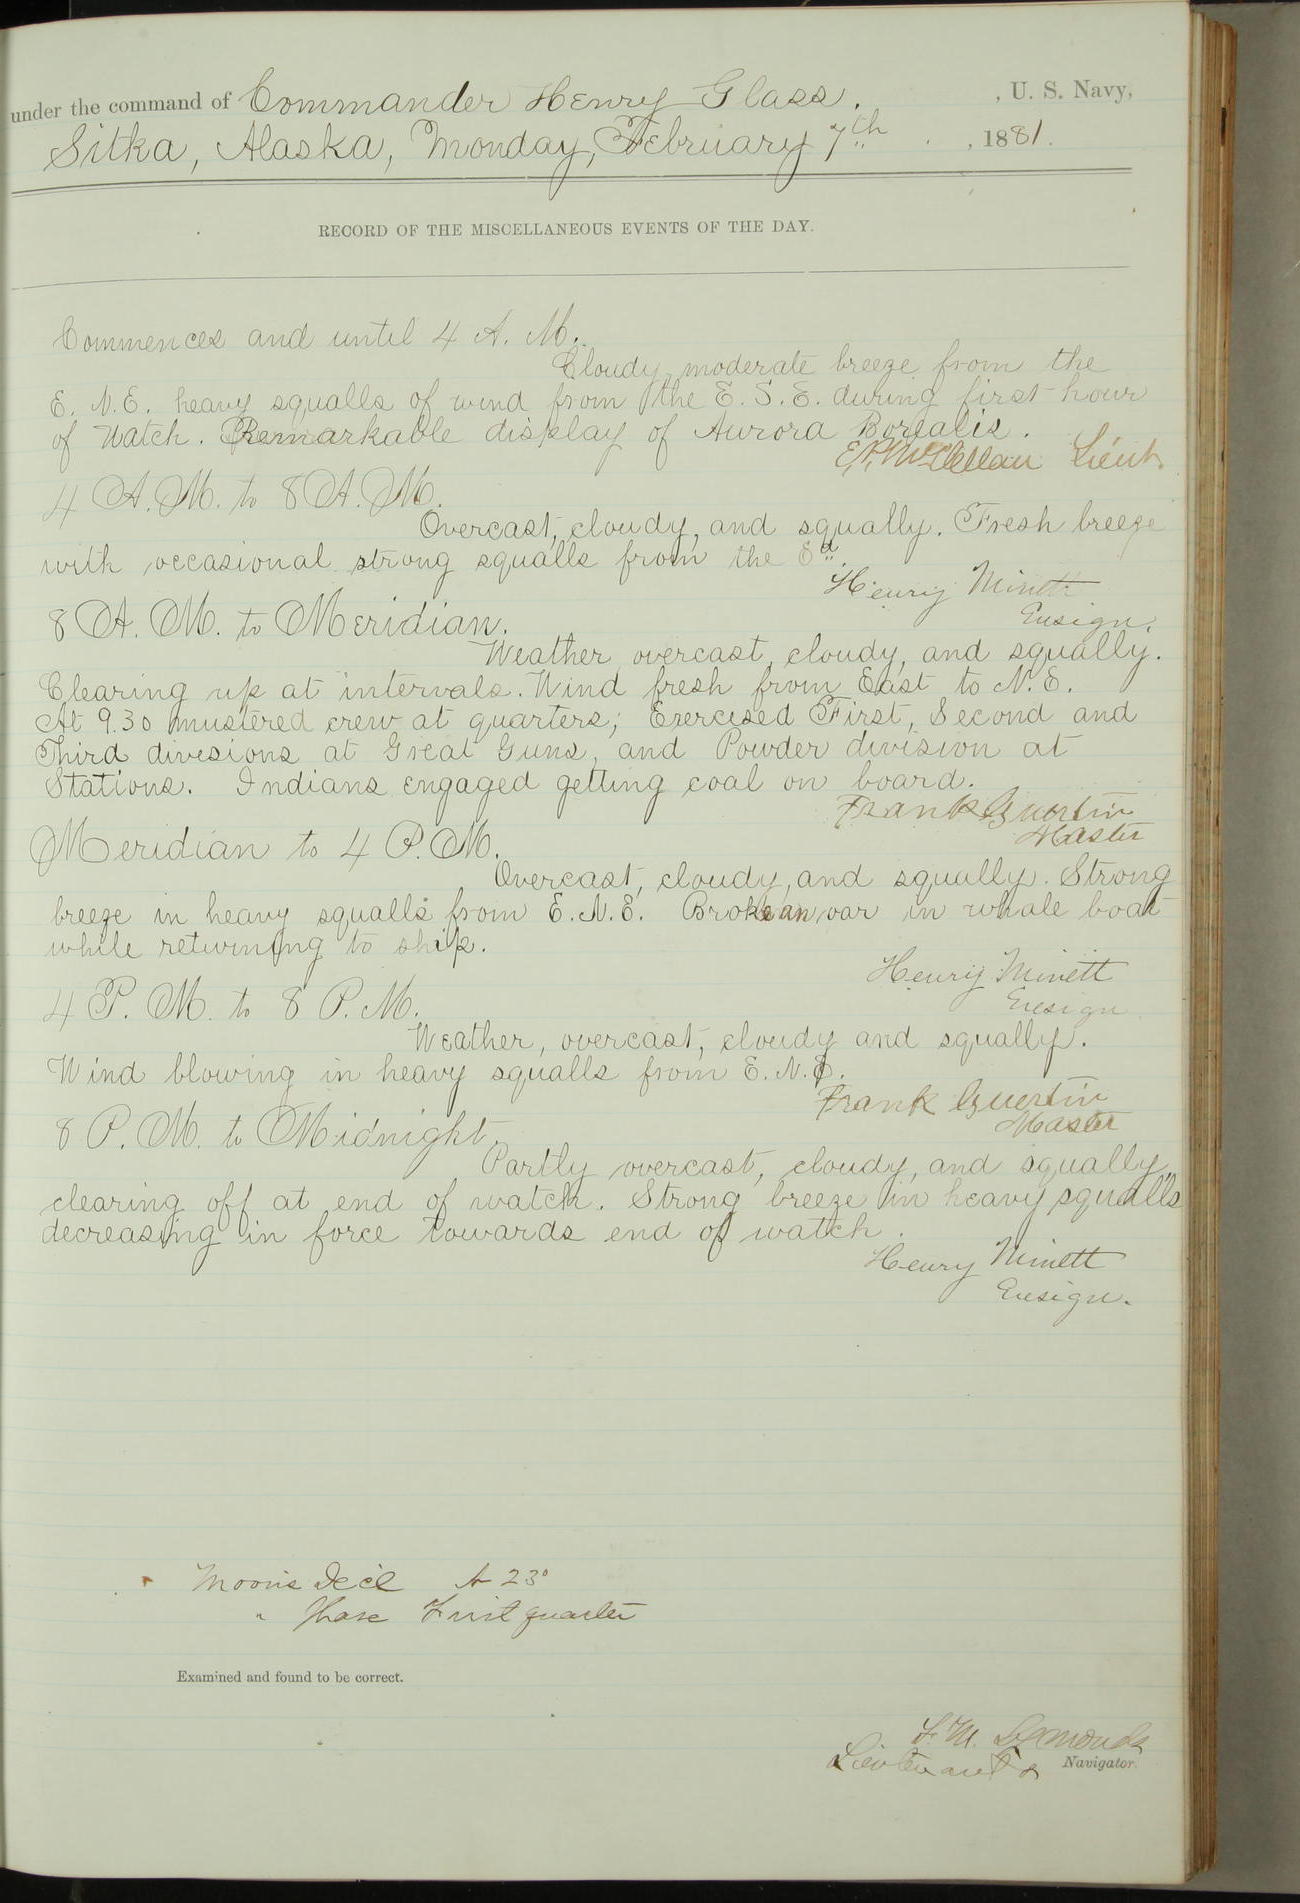 under the command of Commander Henry Glass. , U. S. Navy,
Sitka, Alaska, Monday, February 7th , 1881.
RECORD OF THE MISCELLANEOUS EVENTS OF THE DAY.
Commences and until 4 A. M.
Cloudy, moderate breeze from the
E. N.E. heavy squalls of wind from the E. S. E. during first hour
of Watch. Remarkable display of Aurora Borealis.
E.P. McClellan Lieut.
4 A. M. to 8 A. M.
Overcast, cloudy, and squally. Fresh breeze
with occasional strong squalls from the Ed.
Henry Minett
Ensign.
8 A. M. to Meridian.
Weather overcast, cloudy, and squally.
Clearing up at intervals. Wind fresh from East to N. E.
At 9.30 mustered crew at quarters; Exercised First, Second and
Third divisions at Great Guns, and Powder division at
Stations. Indians engaged getting coal on board.
Frank Guertin
Master
Meridian to 4 P. M.
Overcast, cloudy, and squally. Strong
breeze in heavy squalls from E. N. E. Broke an oar in whale boat
while returning to ship.
Henry Minett
Ensign
4 P. M. to 8 P. M.
Weather, overcast, cloudy and squally.
Wind blowing in heavy squalls from E. N. E.
Frank Guertin
Master
8 P. M. to Midnight.
Partly overcast, cloudy, and squally,
clearing off at end of watch. Strong breeze in heavy squalls
decreasing in force towards end of watch.
Henry Minett
Ensign.
Moon's Decl 23°
" Phase First quarter
Examined and found to be correct.
F. M. Symonds
Lieutenant & Navigator.